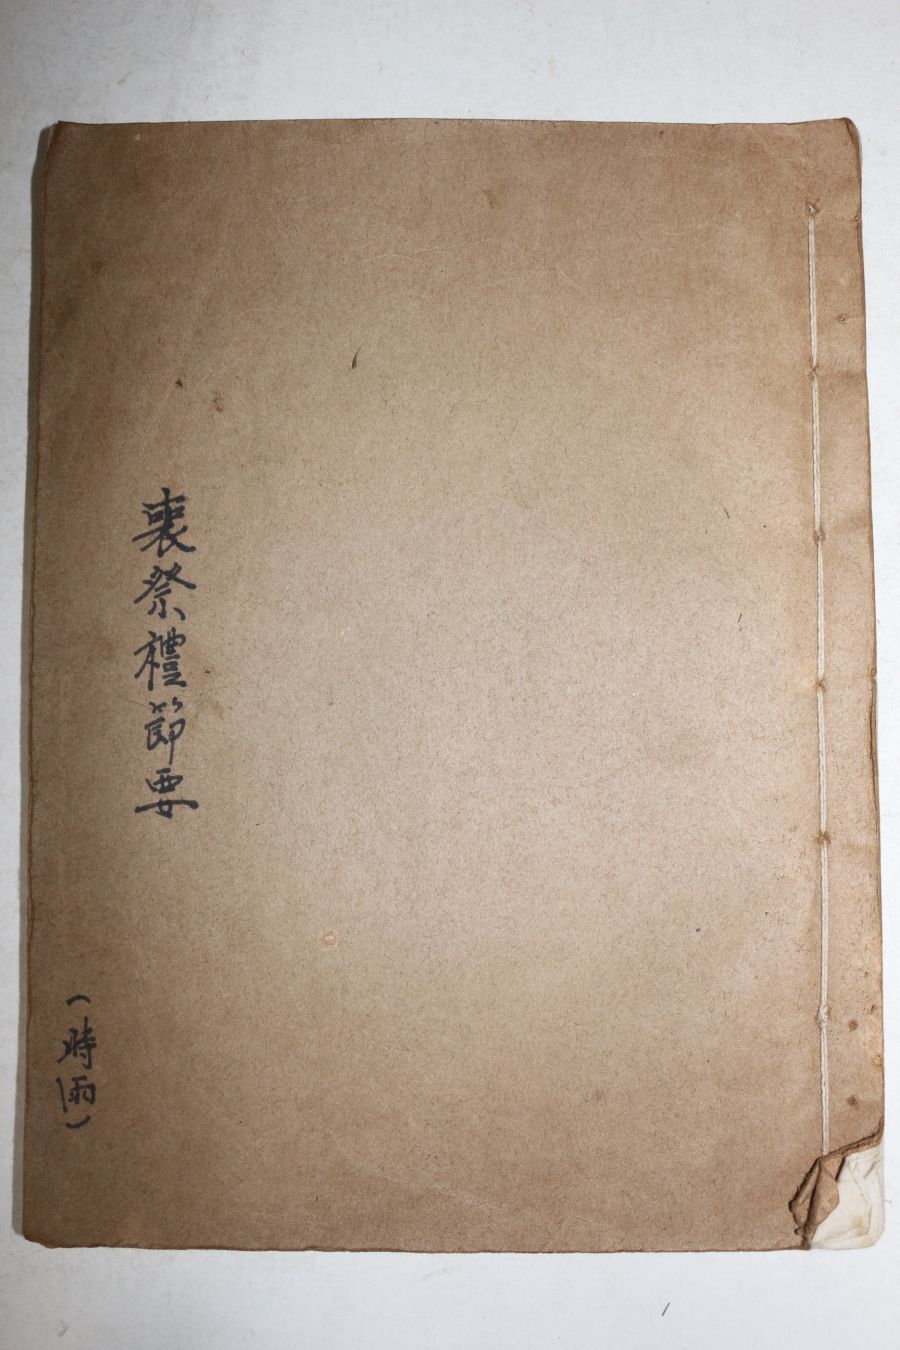 喪祭禮節要
(時雨)